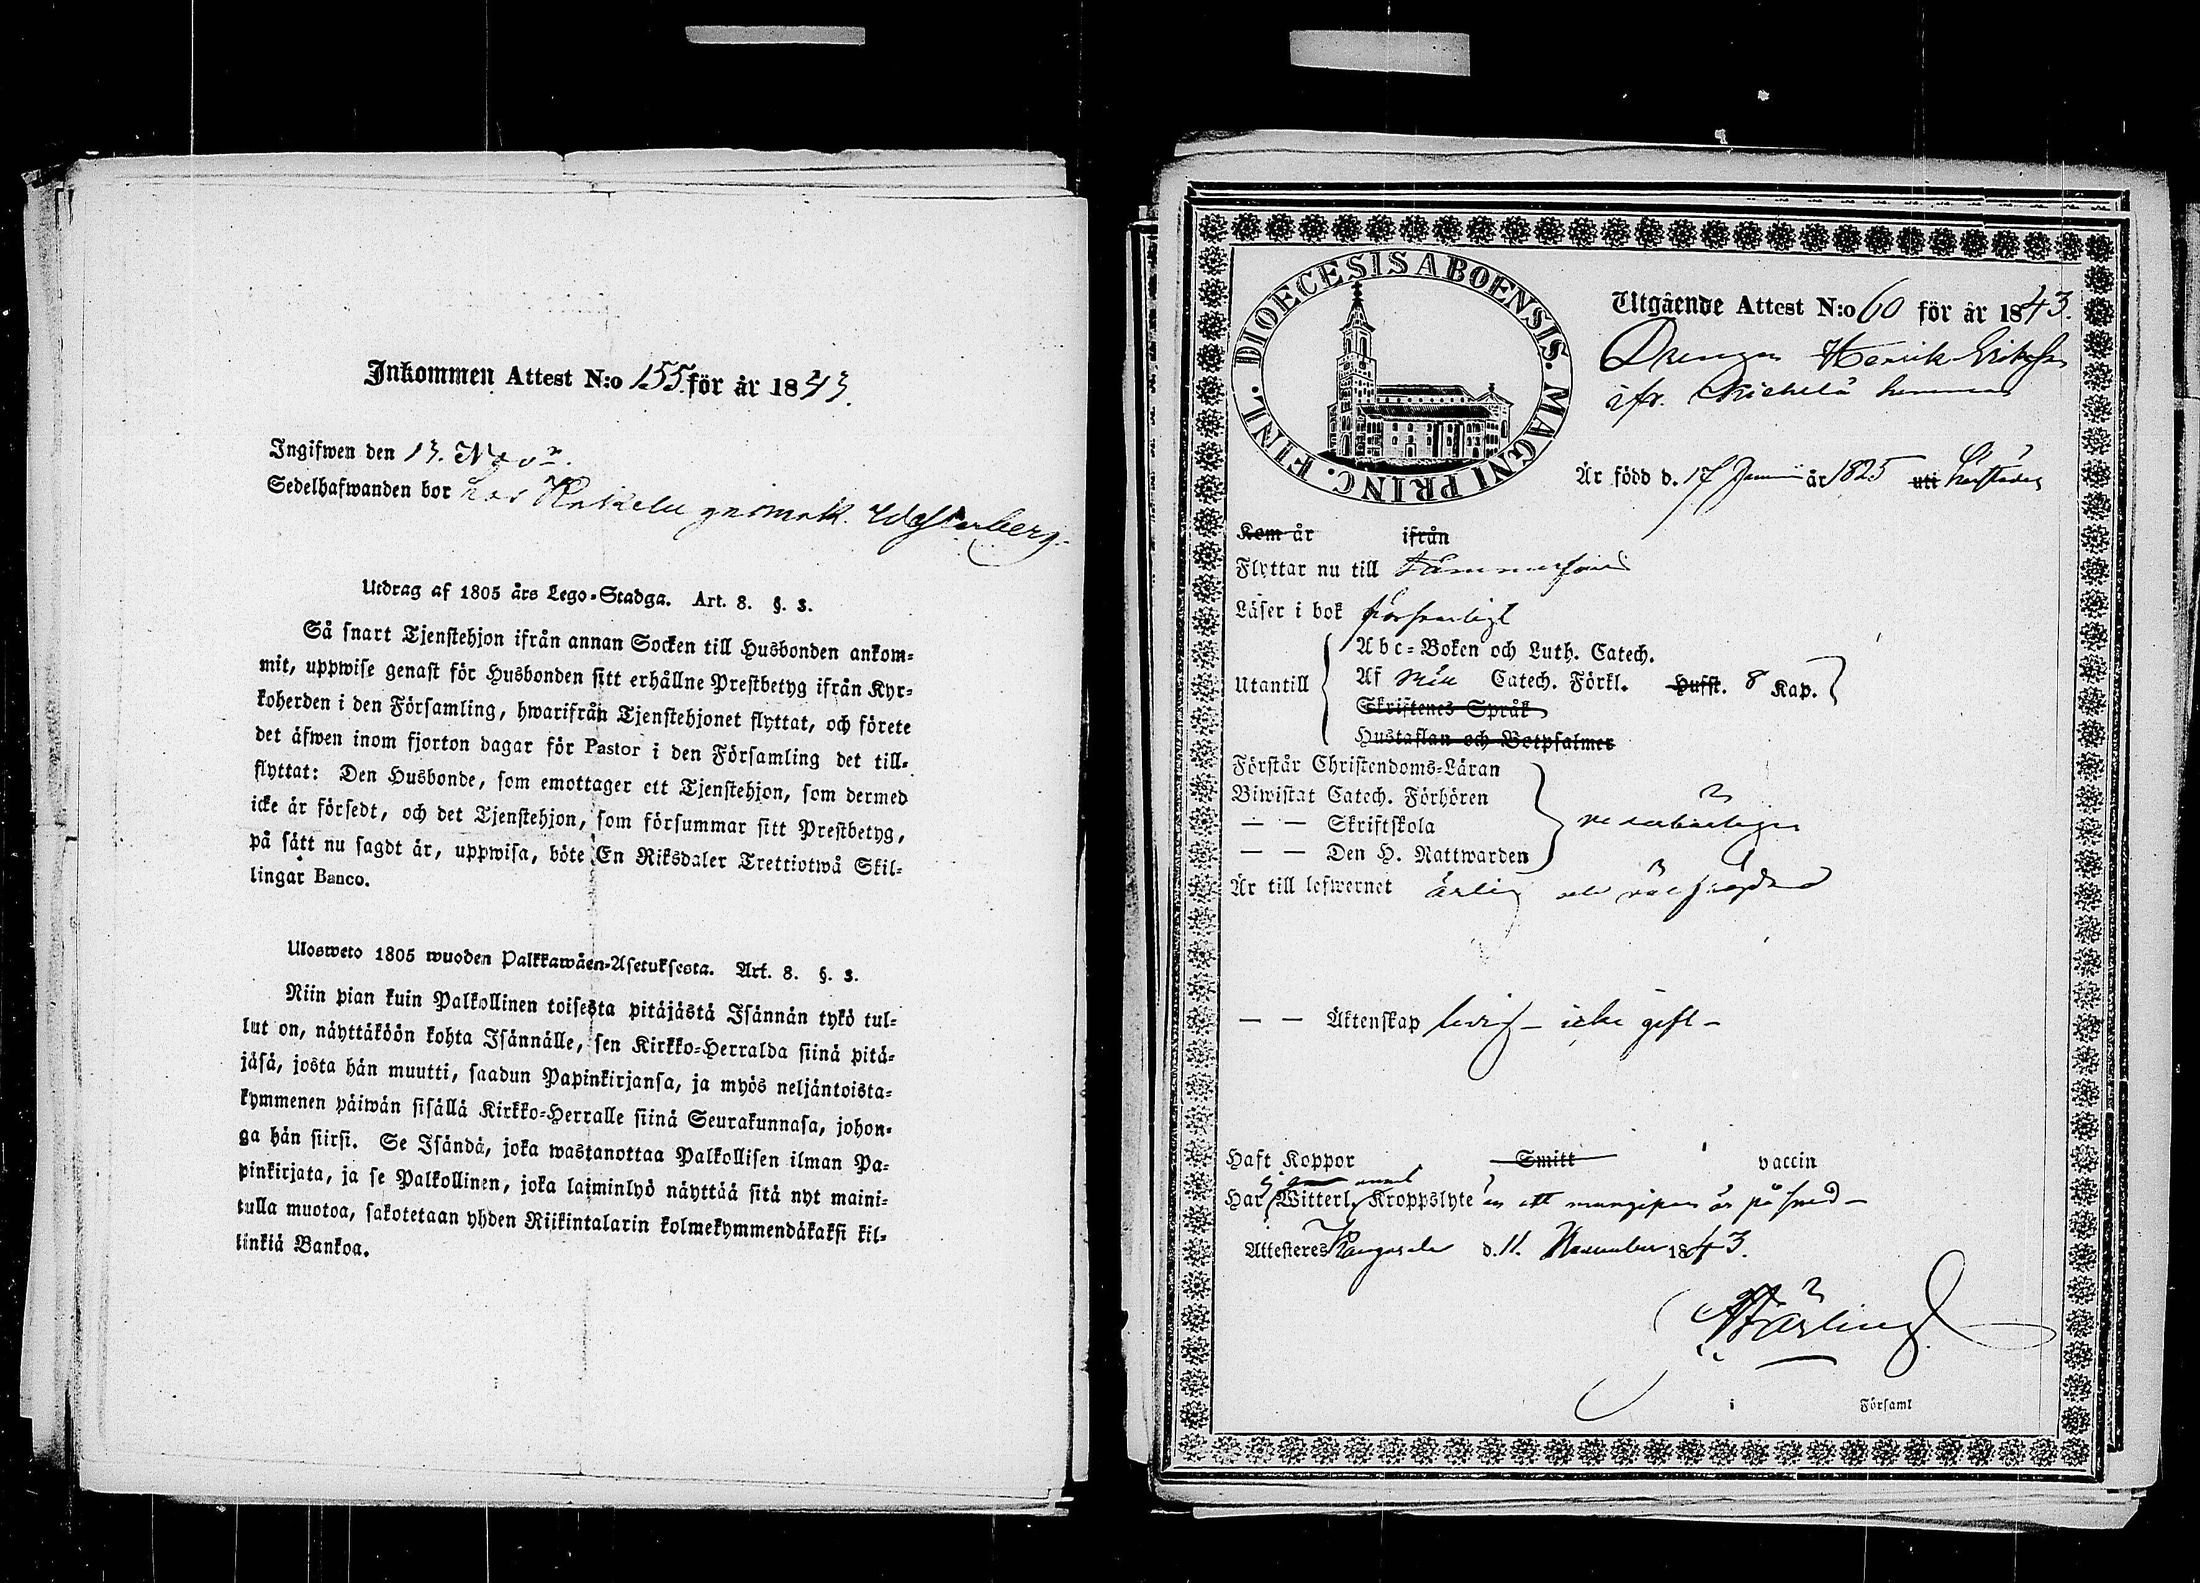 Inkommen Attest N:o 155 för år 1843.
Ingifwen den 13. Nov:r.
Sedelhafwanden bor hos Kakelugnsmak. Westerberg.
Utdrag af 1805 års Lego-Stadga. Art. 8. §. 3.
Så snart Tjenstehjon ifrån annan Socken till Husbonden ankom-
mit, uppwise genast för Husbonden sitt erhållne Prestbetyg ifrån Kyr-
koherden i den Församling, hwarifrån Tjenstehjonet flyttat, och förete
det äfwen inom fjorton dagar för Pastor i den Församling det till-
flyttat: Den Husbonde, som emottager ett Tjenstehjon, som dermed
icke är försedt, och det Tjenstehjon, som försummar sitt Prestbetyg,
på sätt nu sagdt är, uppwisa, böte En Riksdaler Trettiotwå Skil-
lingar Banco.
Ulosweto 1805 wuoden Palkkawäen-Asetuksesta. Art. 8. §. 3.
Niin pian kuin Palkollinen toisesta pitäjästä Isännän tykö tul-
lut on, näyttäköön kohta Isännälle, sen Kirkko-Herralda siinä pitä-
jäsä, josta hän muutti, saadun Papinkirjansa, ja myös neljäntoista-
kymmenen päiwän sisällä Kirkko-Herralle siinä Seurakunnasa, johon-
ga hän siirsi. Se Isändä, joka wastanottaa Palkollisen ilman Pa-
pinkirjata, ja se Palkollinen, joka laiminlyö näyttää sitä nyt maini-
tulla muotoa, sakotetaan yhden Riikintalarin kolmekymmendäkaksi kil-
linkiä Bankoa.
DIOECESIS ABOENSIS. MAGNI PRINC. FINL.
Utgående Attest N:o 60 för år 1843.
Drengen Henrik Eriksson
ifr. hemman
Är född d. 17 Januarii år 1825 uti
Kom år ifrån
Flyttar nu till Tammerfors
Läser i bok försvarligt
Abc-Boken och Luth. Catech.
Utantill Af Catech. Förkl. Husst. 8 Kap.
Skriftenes Språk
Hustaflan och Botpsalmer
Förstår Christendoms-Läran
Biwistat Catech. Förhören
— — Skriftskola
— — Den H. Nattwarden
Är till lefwernet ärlig och väl frägdad
— — Äktenskap ledig – icke gift –
Haft Koppor Smitt vaccin
Har Witterl. Kroppslyte
Attesteres Kangasala d. 11. November 1843.
i Församl